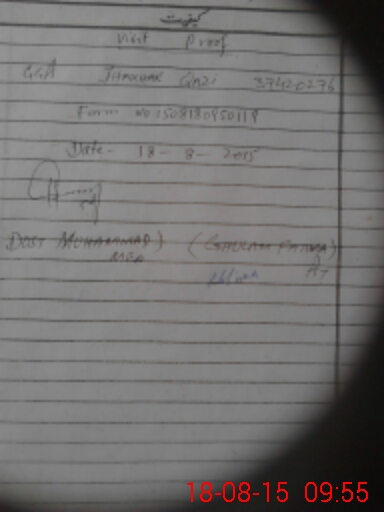 کیفیت
Visit Proof
GGA JHAKHAR QAZI 37420276
Form No 1508180950119
Date- 18 - 8 - 2015
DOST MUHAMMAD) (GHULAM FATIMA)
MEA AT
18-08-15 09:55